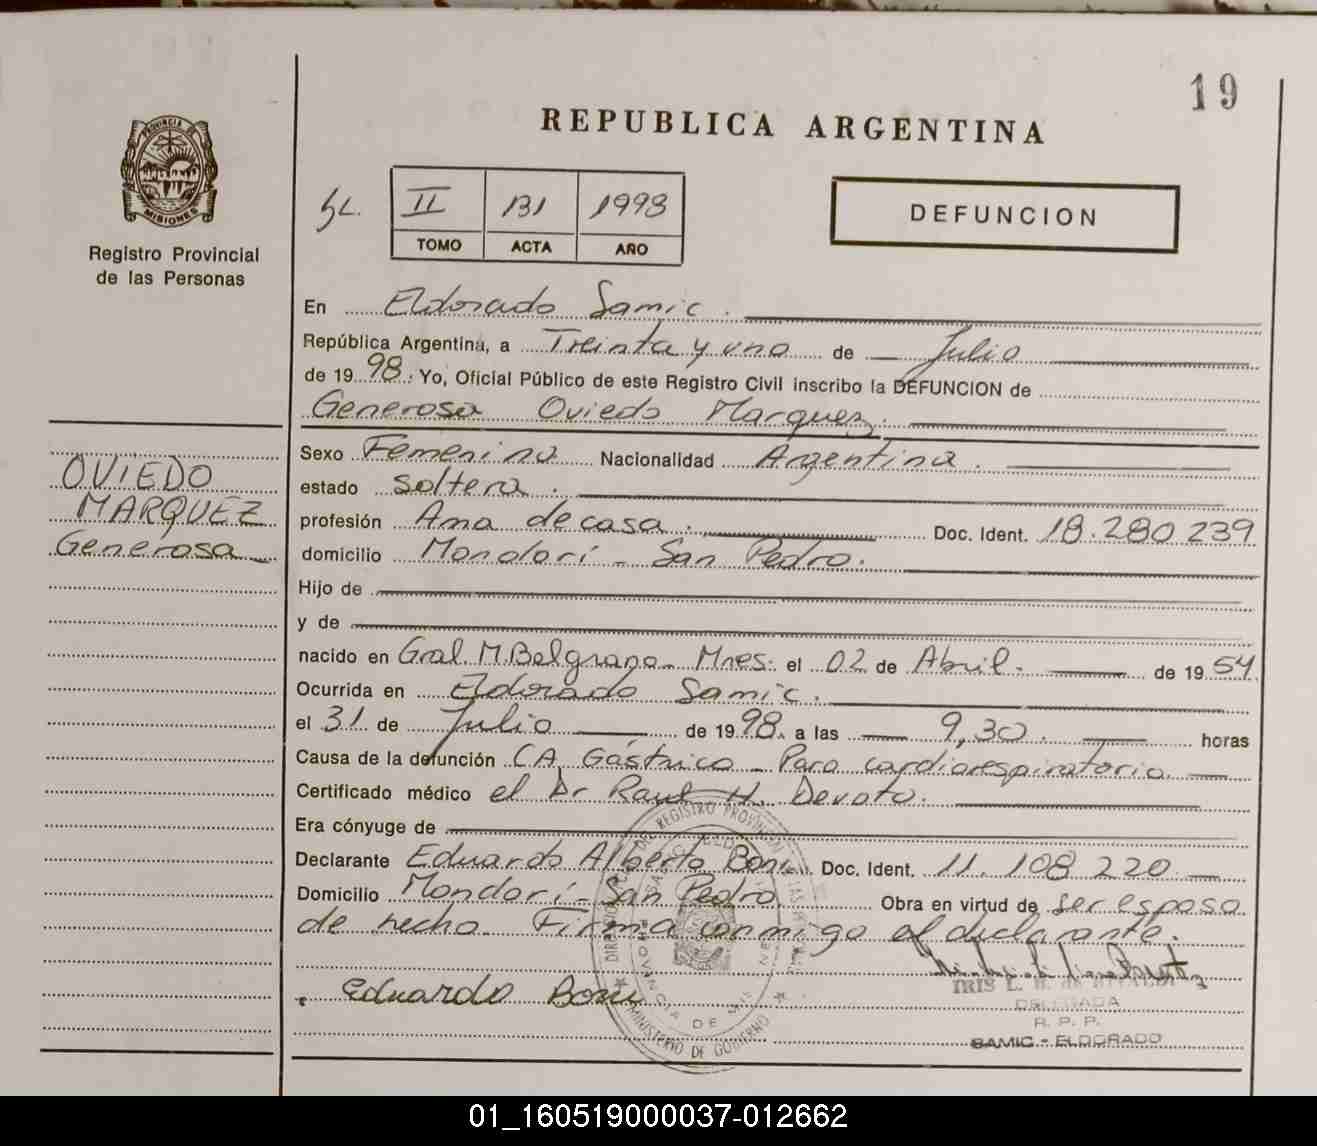 19
REPUBLICA ARGENTINA
PROVINCIA DE
MISIONES
Registro Provincial
de las Personas
II 131 1998
TOMO ACTA AÑO
DEFUNCION
En Eldorado Samic.
República Argentina, a Treinta y uno de Julio
de 1998. Yo, Oficial Público de este Registro Civil inscribo la DEFUNCION de
Generosa Oviedo Marquez.
OVIEDO
MARQUEZ
Generosa
Sexo Femenino Nacionalidad Argentina.
estado soltera.
profesión Ama de casa. Doc. Ident. 18.280 239
domicilio Mondorí - San Pedro.
Hijo de
y de
nacido en Gral. M. Belgrano - Mnes. el 02 de Abril. de 1954.
Ocurrida en Eldorado Samic.
el 31 de Julio de 1998. a las 9,30. horas
Causa de la defunción CA Gástrico - Paro cardiorespiratorio.
Certificado médico el Dr Raul H. Devoto.
Era cónyuge de
Declarante Eduardo Alberto Boni. Doc. Ident. 11.108 220
Domicilio Mondorí - San Pedro. Obra en virtud de ser esposo
de hecho. Firma conmigo el declarante.
Eduardo Boni
IRIS L.
DELEGADA
R. P. P.
SAMIC - ELDORADO
DEL REGISTRO PROVINCIAL DE LAS
MINISTERIO DE GOBIERNO
PROVINCIA DE MIS
01_160519000037-012662